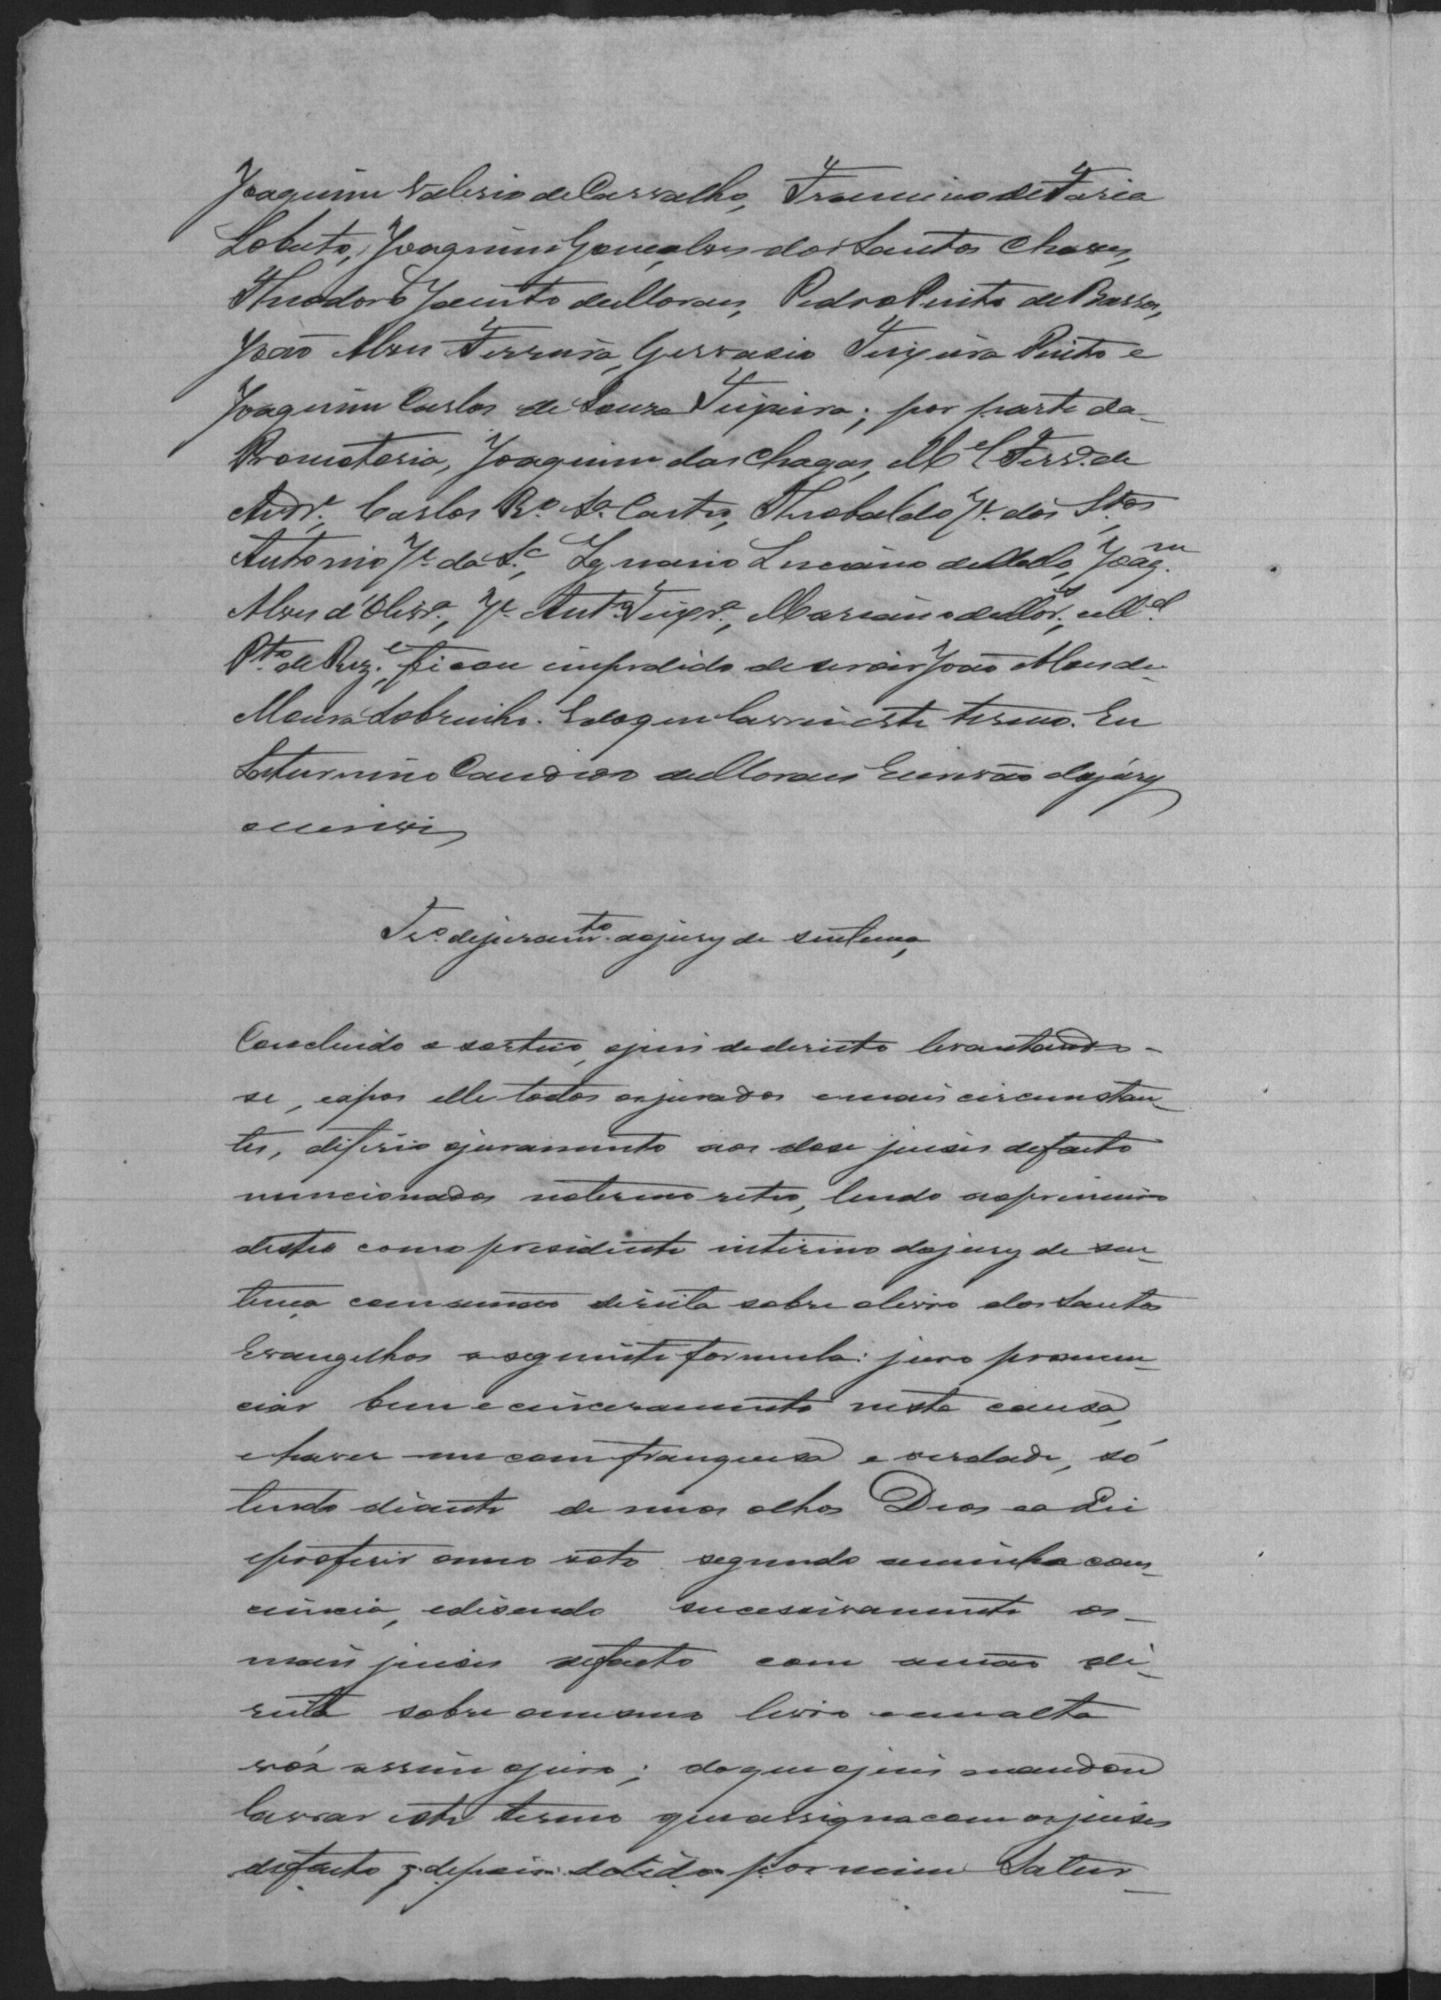 Joaquim Valerio de Carvalho, Francino de Faria
Lobato, Joaquim Gonçalves dos Santos Chaves,
Theodoro Jacinto de Moraes, Pedro Pinto de Barros,
João Alves Ferreira, Gervasio Teixeira Pinto e
Joaquim Carlos de Souza Teixeira; por parte da
Promotoria, Joaquim das Chagas, M.el Ferr.a de
Andr.e, Carlos R.o S.a Castro, Theobaldo J.e dos S.tos
Antonio J.e da S.a, Ignacio Luciano de Mello, Joaq.m
Alves d'Olivr.a, J.e Ant.o Teixr.a, Marciano de Mor.s, e M.el
P.to de Rez.e, ficou impedido de servir João Alves de
Moura Sobrinho. E do que lavrei este termo. Eu
Saturnino Candido de Moraes Escrivão do jury
o escrivi
Tr.o de juram.to do jury de sentença
Concluido o sorteio, o juis de dereito levantando-
se, e apos elle todos os jurados e mais circumstan-
tes, diferio o juramento aos dose juises de facto
mencionados no termo retro, lendo o primeiro
destes como presidente interino do jury de sen-
tença com a mão direita sobre o livro dos Santos
Evangelhos a seguinte formula: juro pronun-
ciar bem e cinceramente nesta causa,
e haver me com franquesa e verdade, só
tendo diante de meos olhos Deos e a Lei
e proferir o meo voto segundo a minha cons-
ciencia, e disendo sucessivamente os
mais juises de facto com a mão di-
reita sobre o mesmo livro em alta
vós assim o juro; do que o juis mandou
lavrar este termo que assigna com os juises
de facto depois de lido por mim Satur-